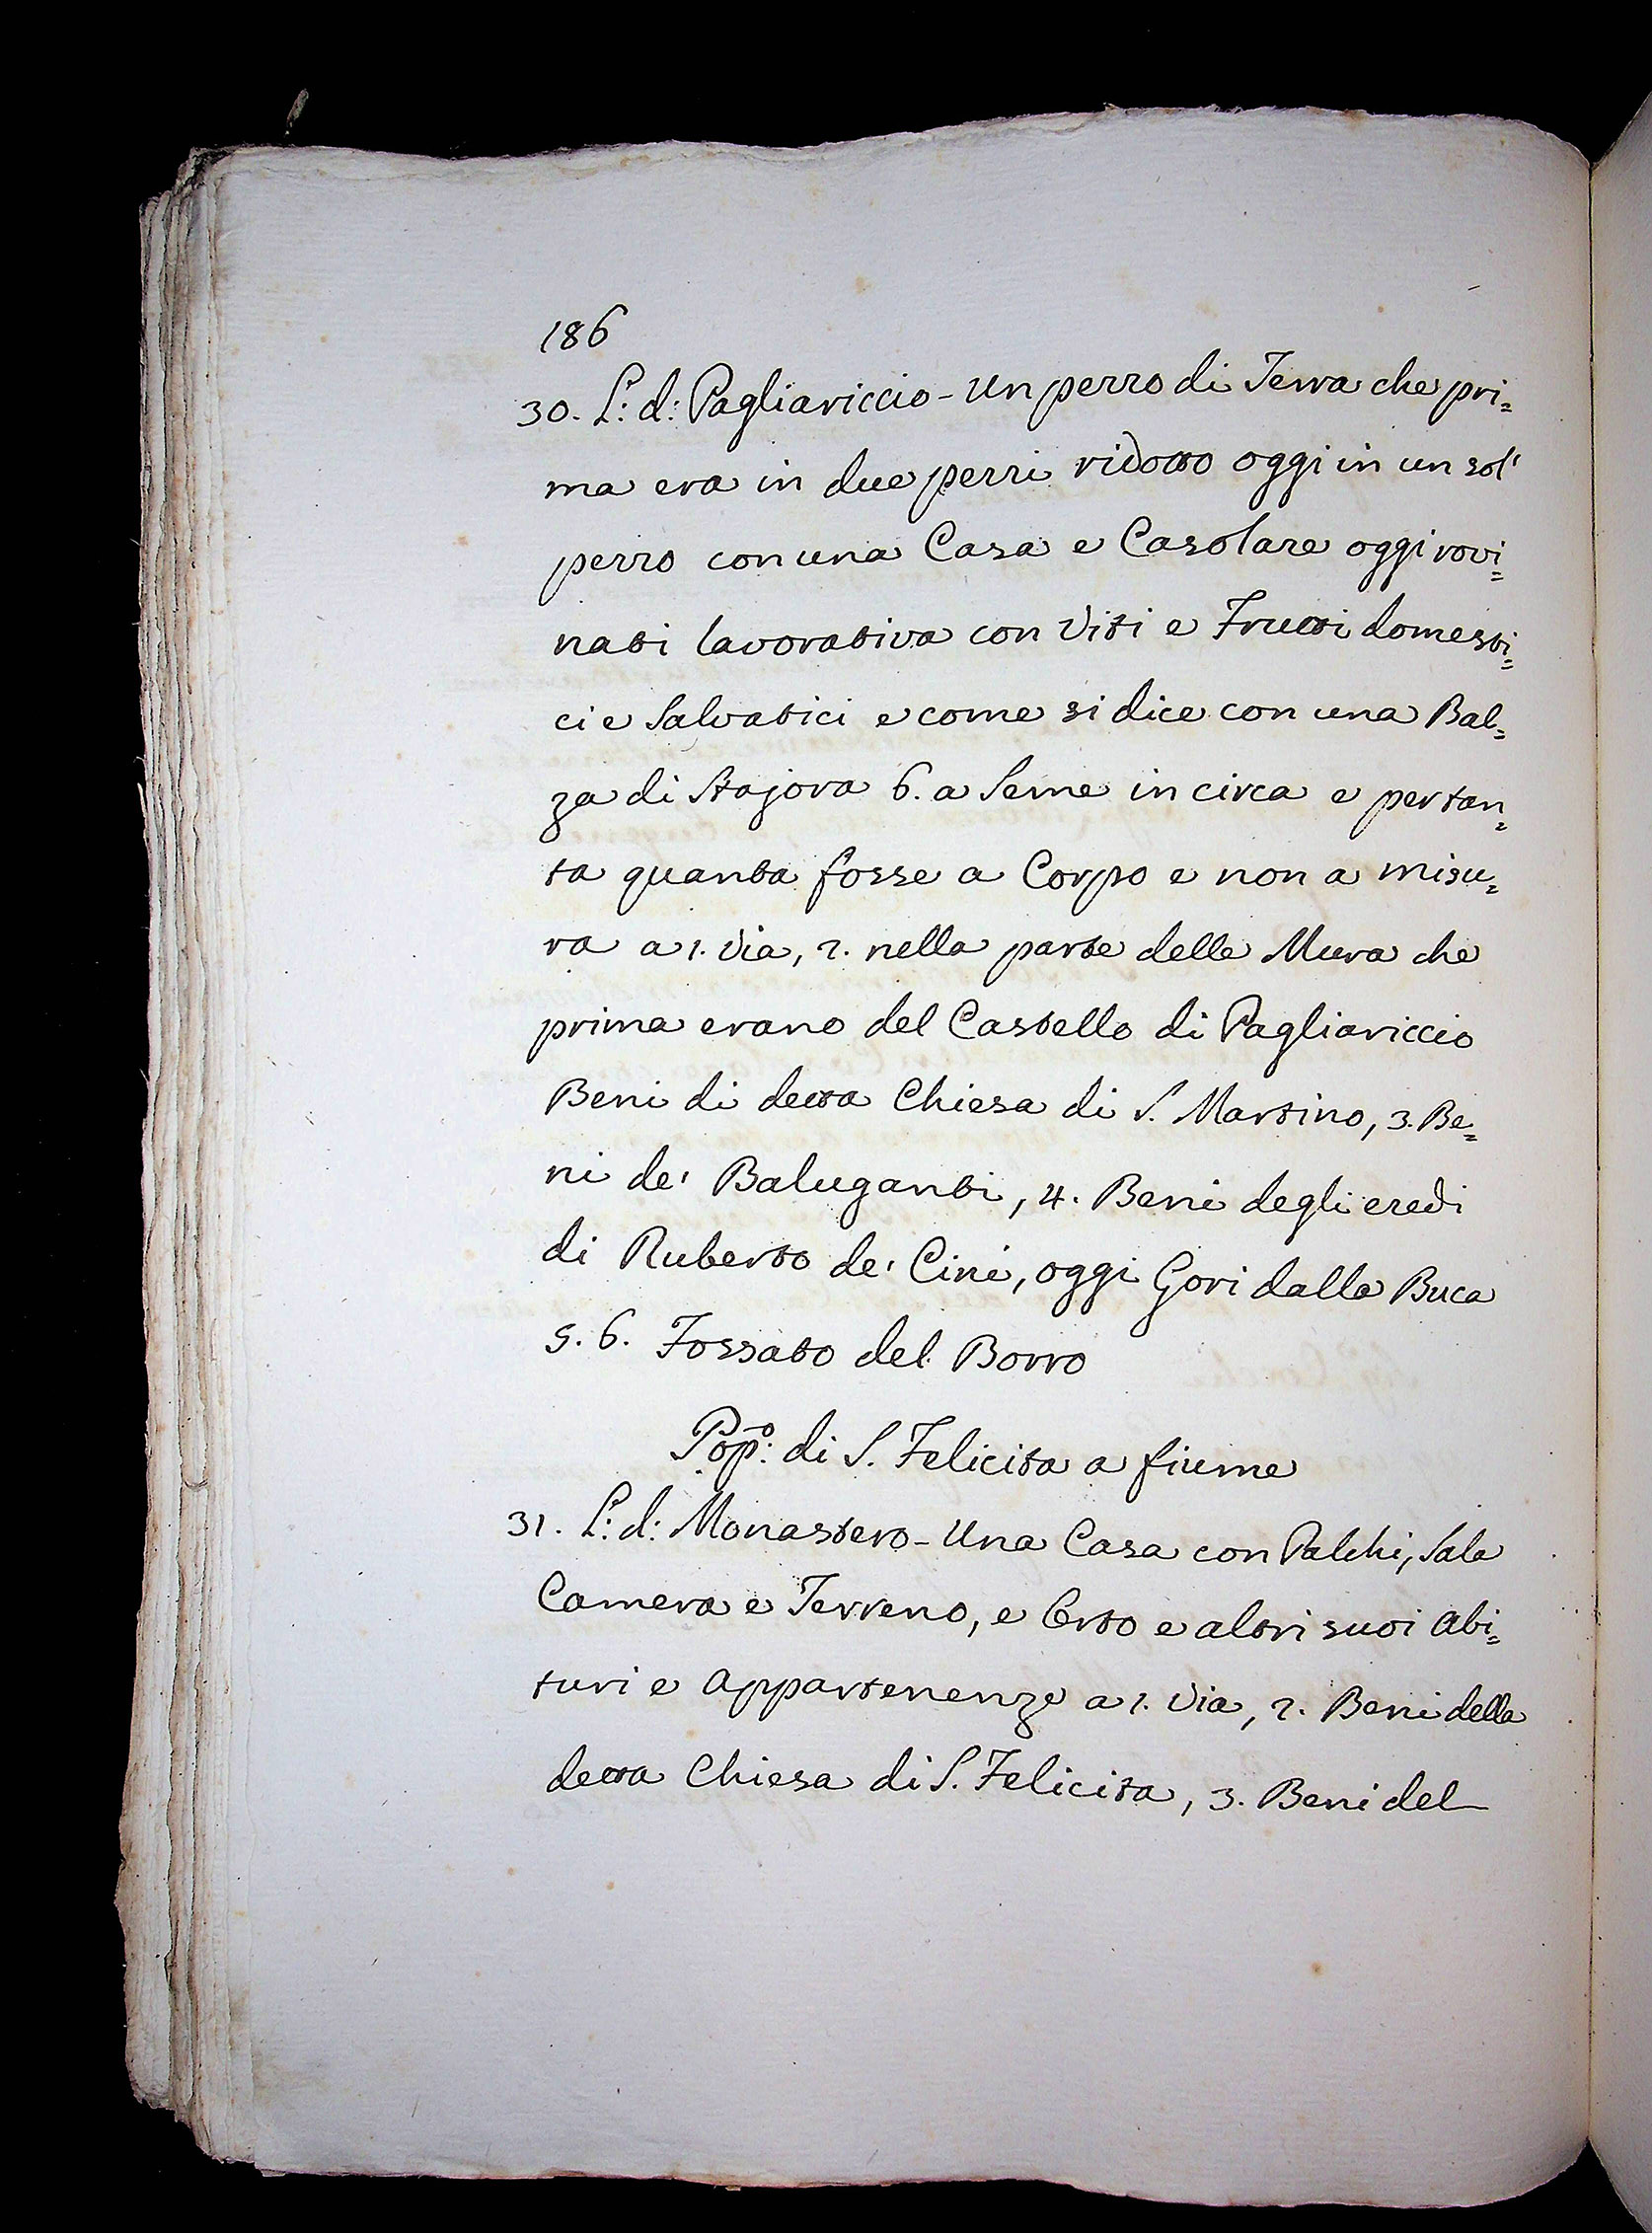 186
30. L: d: Pagliariccio - Un pezzo di Terra che pri=
ma era in due pezzi ridotto oggi in un sol'
pezzo con una Casa e Casolare oggi rovi=
nati lavorativa con Viti e Frutti domesti=
ci e Salvatici e come si dice con una Bal=
za di Stajora 6. a Seme in circa e per tan=
ta quanta fosse a Corpo e non a misu=
ra a 1. Via, 2. nella parte delle Mura che
prima erano del Castello di Pagliariccio
Beni di detta Chiesa di S. Martino, 3. Be=
ni de' Baluganti, 4. Beni degli eredi
di Ruberto de' Cini, oggi Gori dalla Buca
5. 6. Fossato del Borro
Pop.o: di S. Felicita a fiume
31. L: d: Monastero - Una Casa con Palchi, Sala
Camera e Terreno, e Orto e altri suoi Abi=
turi e Appartenenze a 1. Via, 2. Beni della
detta Chiesa di S. Felicita, 3. Beni del